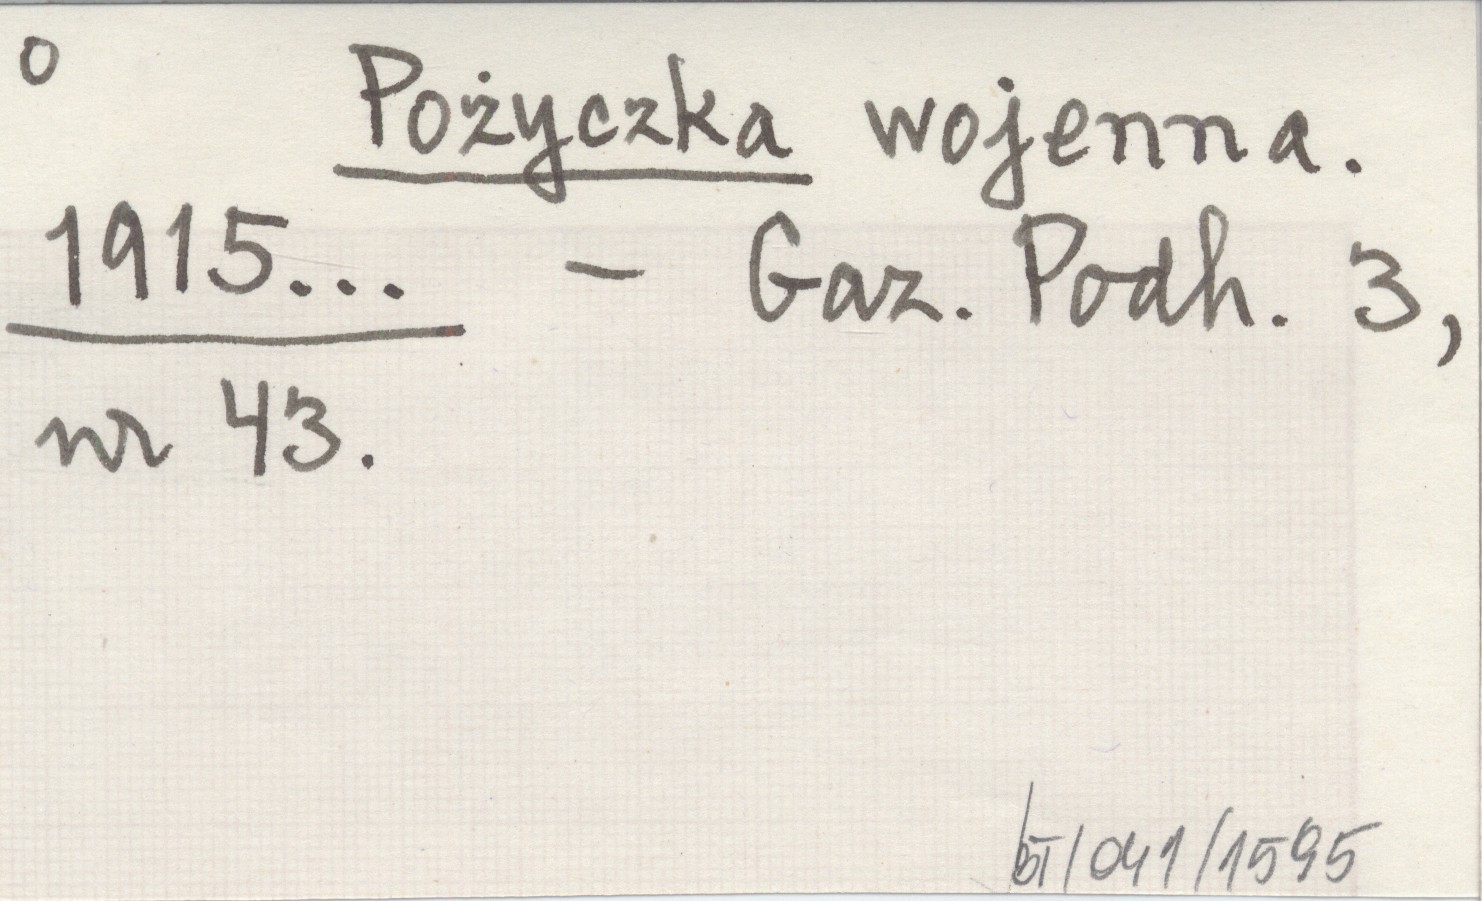 o Pożyczka wojenna.
1915... - Gaz. Podh. 3,
nr 43.
bT/041/1595